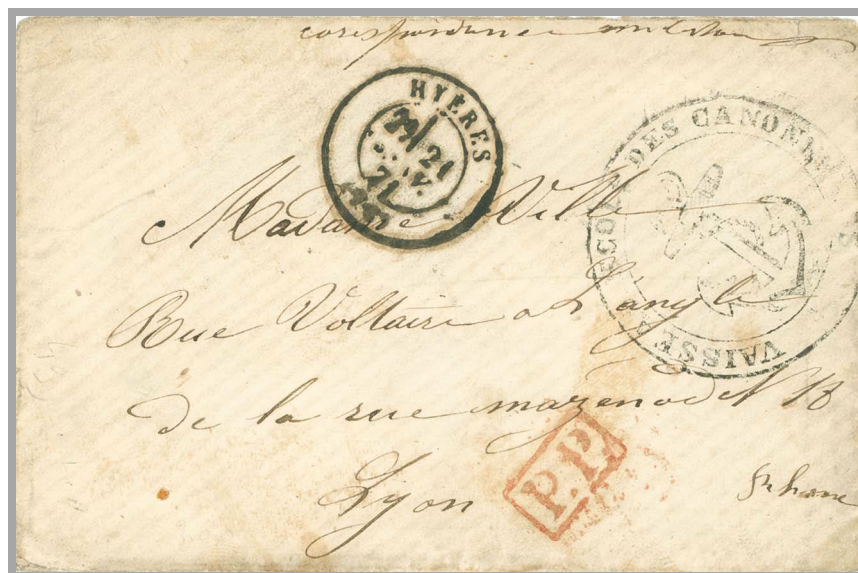 corespondence militaire
HYÈRES
21
71
ÉCOLE DES CANONNIERS
VAISSE
Madame Ville
Rue Voltaire a L'angle
de la rue mazenod N 18
Lyon
P.P.
Rhone